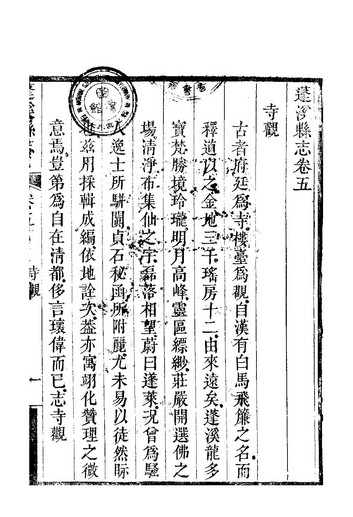 蓬溪縣志卷五
寺觀
古者府廷爲寺樓臺爲觀自漢有白馬飛簾之名而
釋道以之金地三千瑤房十二由來遠矣蓬溪龍多
寶梵勝境玲瓏明月高峰靈區縹緲莊嚴開選佛之
場清淨布集仙之宇磊落相望蔚曰蓬萊況曾爲騷
人逸士所駢闐貞石秘函所附麗尤未易以徒然眎
茲用採輯成編依地詮次蓋亦寓翊化贊理之微
意焉豈第爲自在清都侈言瓌偉而已志寺觀
寺觀
一